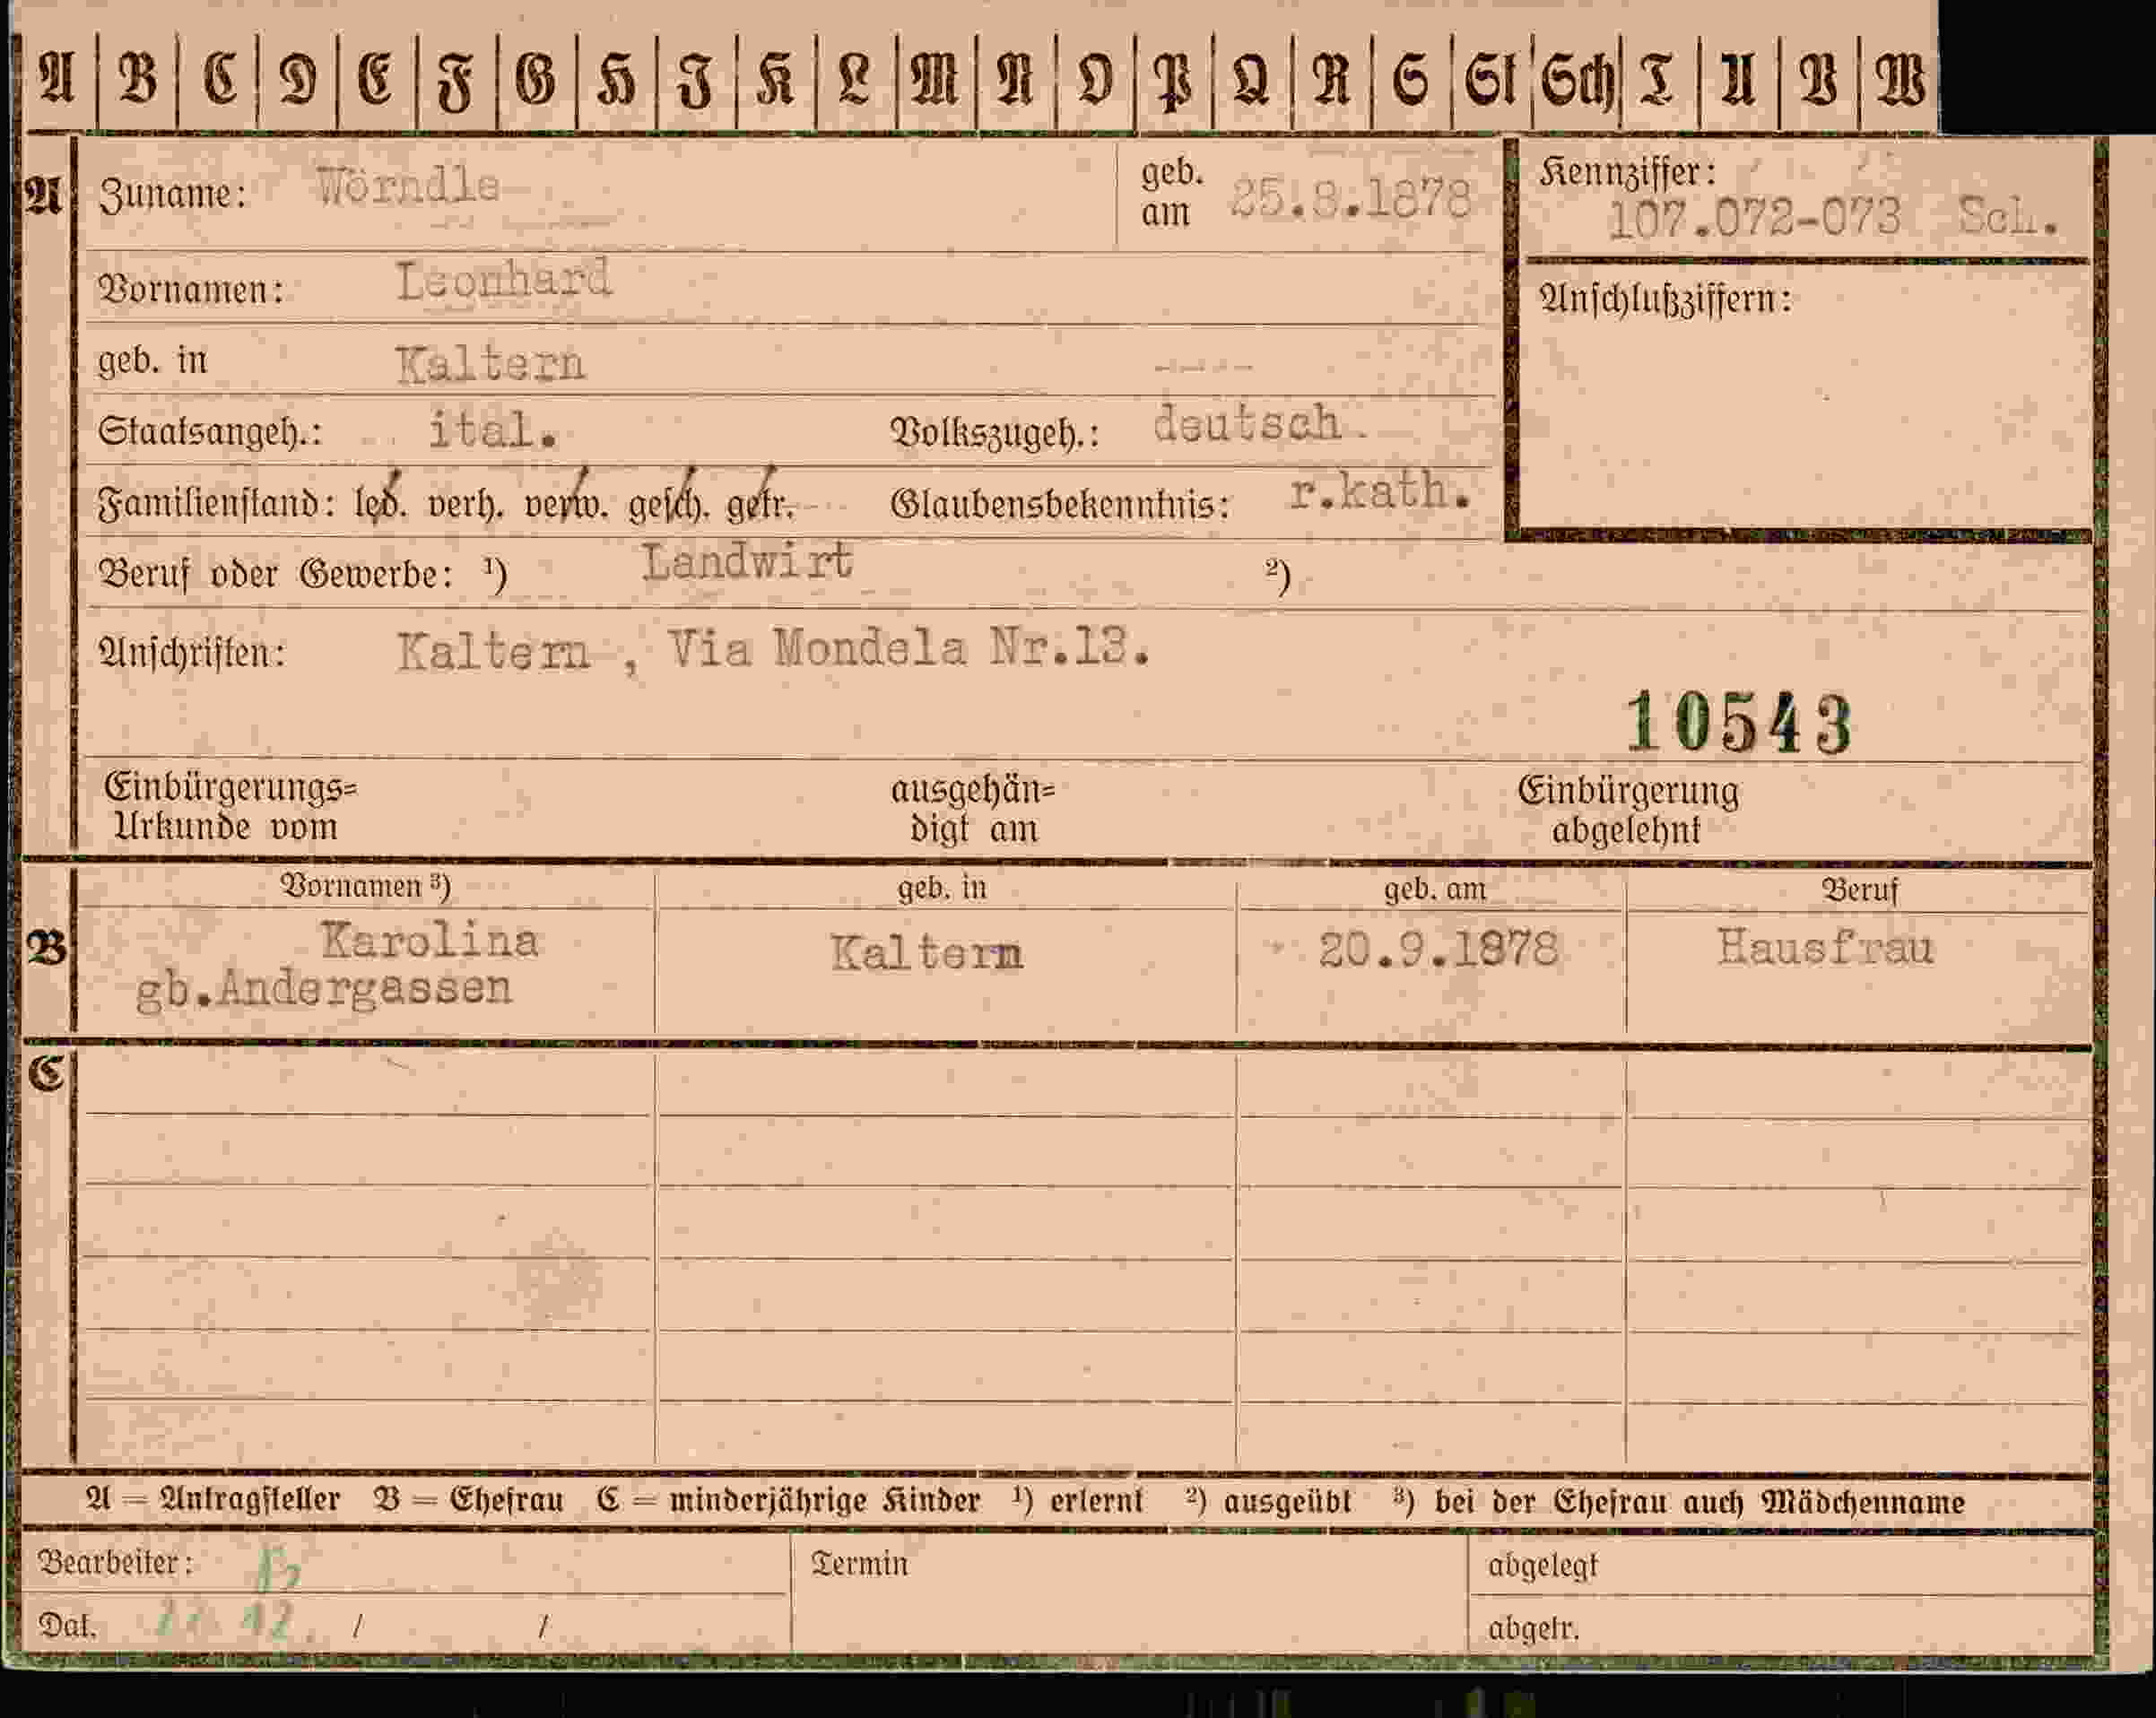 A B C D E F G H J K L M N O P Q R S St Sch T U V W
A Zuname: Wörndle geb. am 25.8.1878 Kennziffer:
107.072-073 Sch.
Vornamen: Leonhard Anschlußziffern:
geb. in Kaltern ----
Staatsangeh.: ital. Volkszugeh.: deutsch.
Familienstand: led. verh. verw. gesch. getr. Glaubensbekenntnis: r.kath.
Beruf oder Gewerbe: ¹) Landwirt ²)
Anschriften: Kaltern , Via Mondela Nr.13.
10543
Einbürgerungs= ausgehän= Einbürgerung
Urkunde vom digt am abgelehnt
Vornamen ³) geb. in geb. am Beruf
B Karolina Kaltern 20.9.1878 Hausfrau
gb.Andergassen
C
A = Antragsteller B = Ehefrau C = minderjährige Kinder ¹) erlernt ²) ausgeübt ³) bei der Ehefrau auch Mädchenname
Bearbeiter: Termin abgelegt
Dat. / / abgetr.